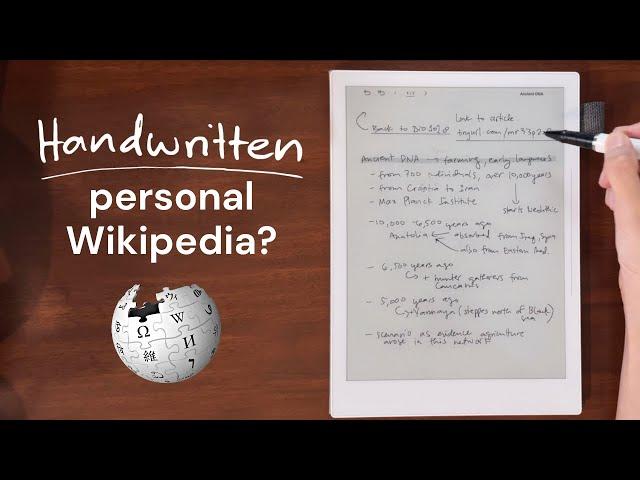 Handwritten
personal
Wikipedia?
Ω
W
И
維
7
Ancient DNA
Link to article
Back to
Ancient DNA → farming, early languages
- from 700 individuals, over 10,000 years
- from Croatia to Iran
- Max Planck Institute
starts Neolithic
- 10,000 - 6,500 years ago
Anatolia ← absorbed from Iraq, Syria
also from Eastern Med.
- 6,500 years ago
+ hunter gatherers from
Caucasus
- 5,000 years ago
+ Yamnaya (steppes north of Black
sea)
- scenario as evidence agriculture
arose in this network